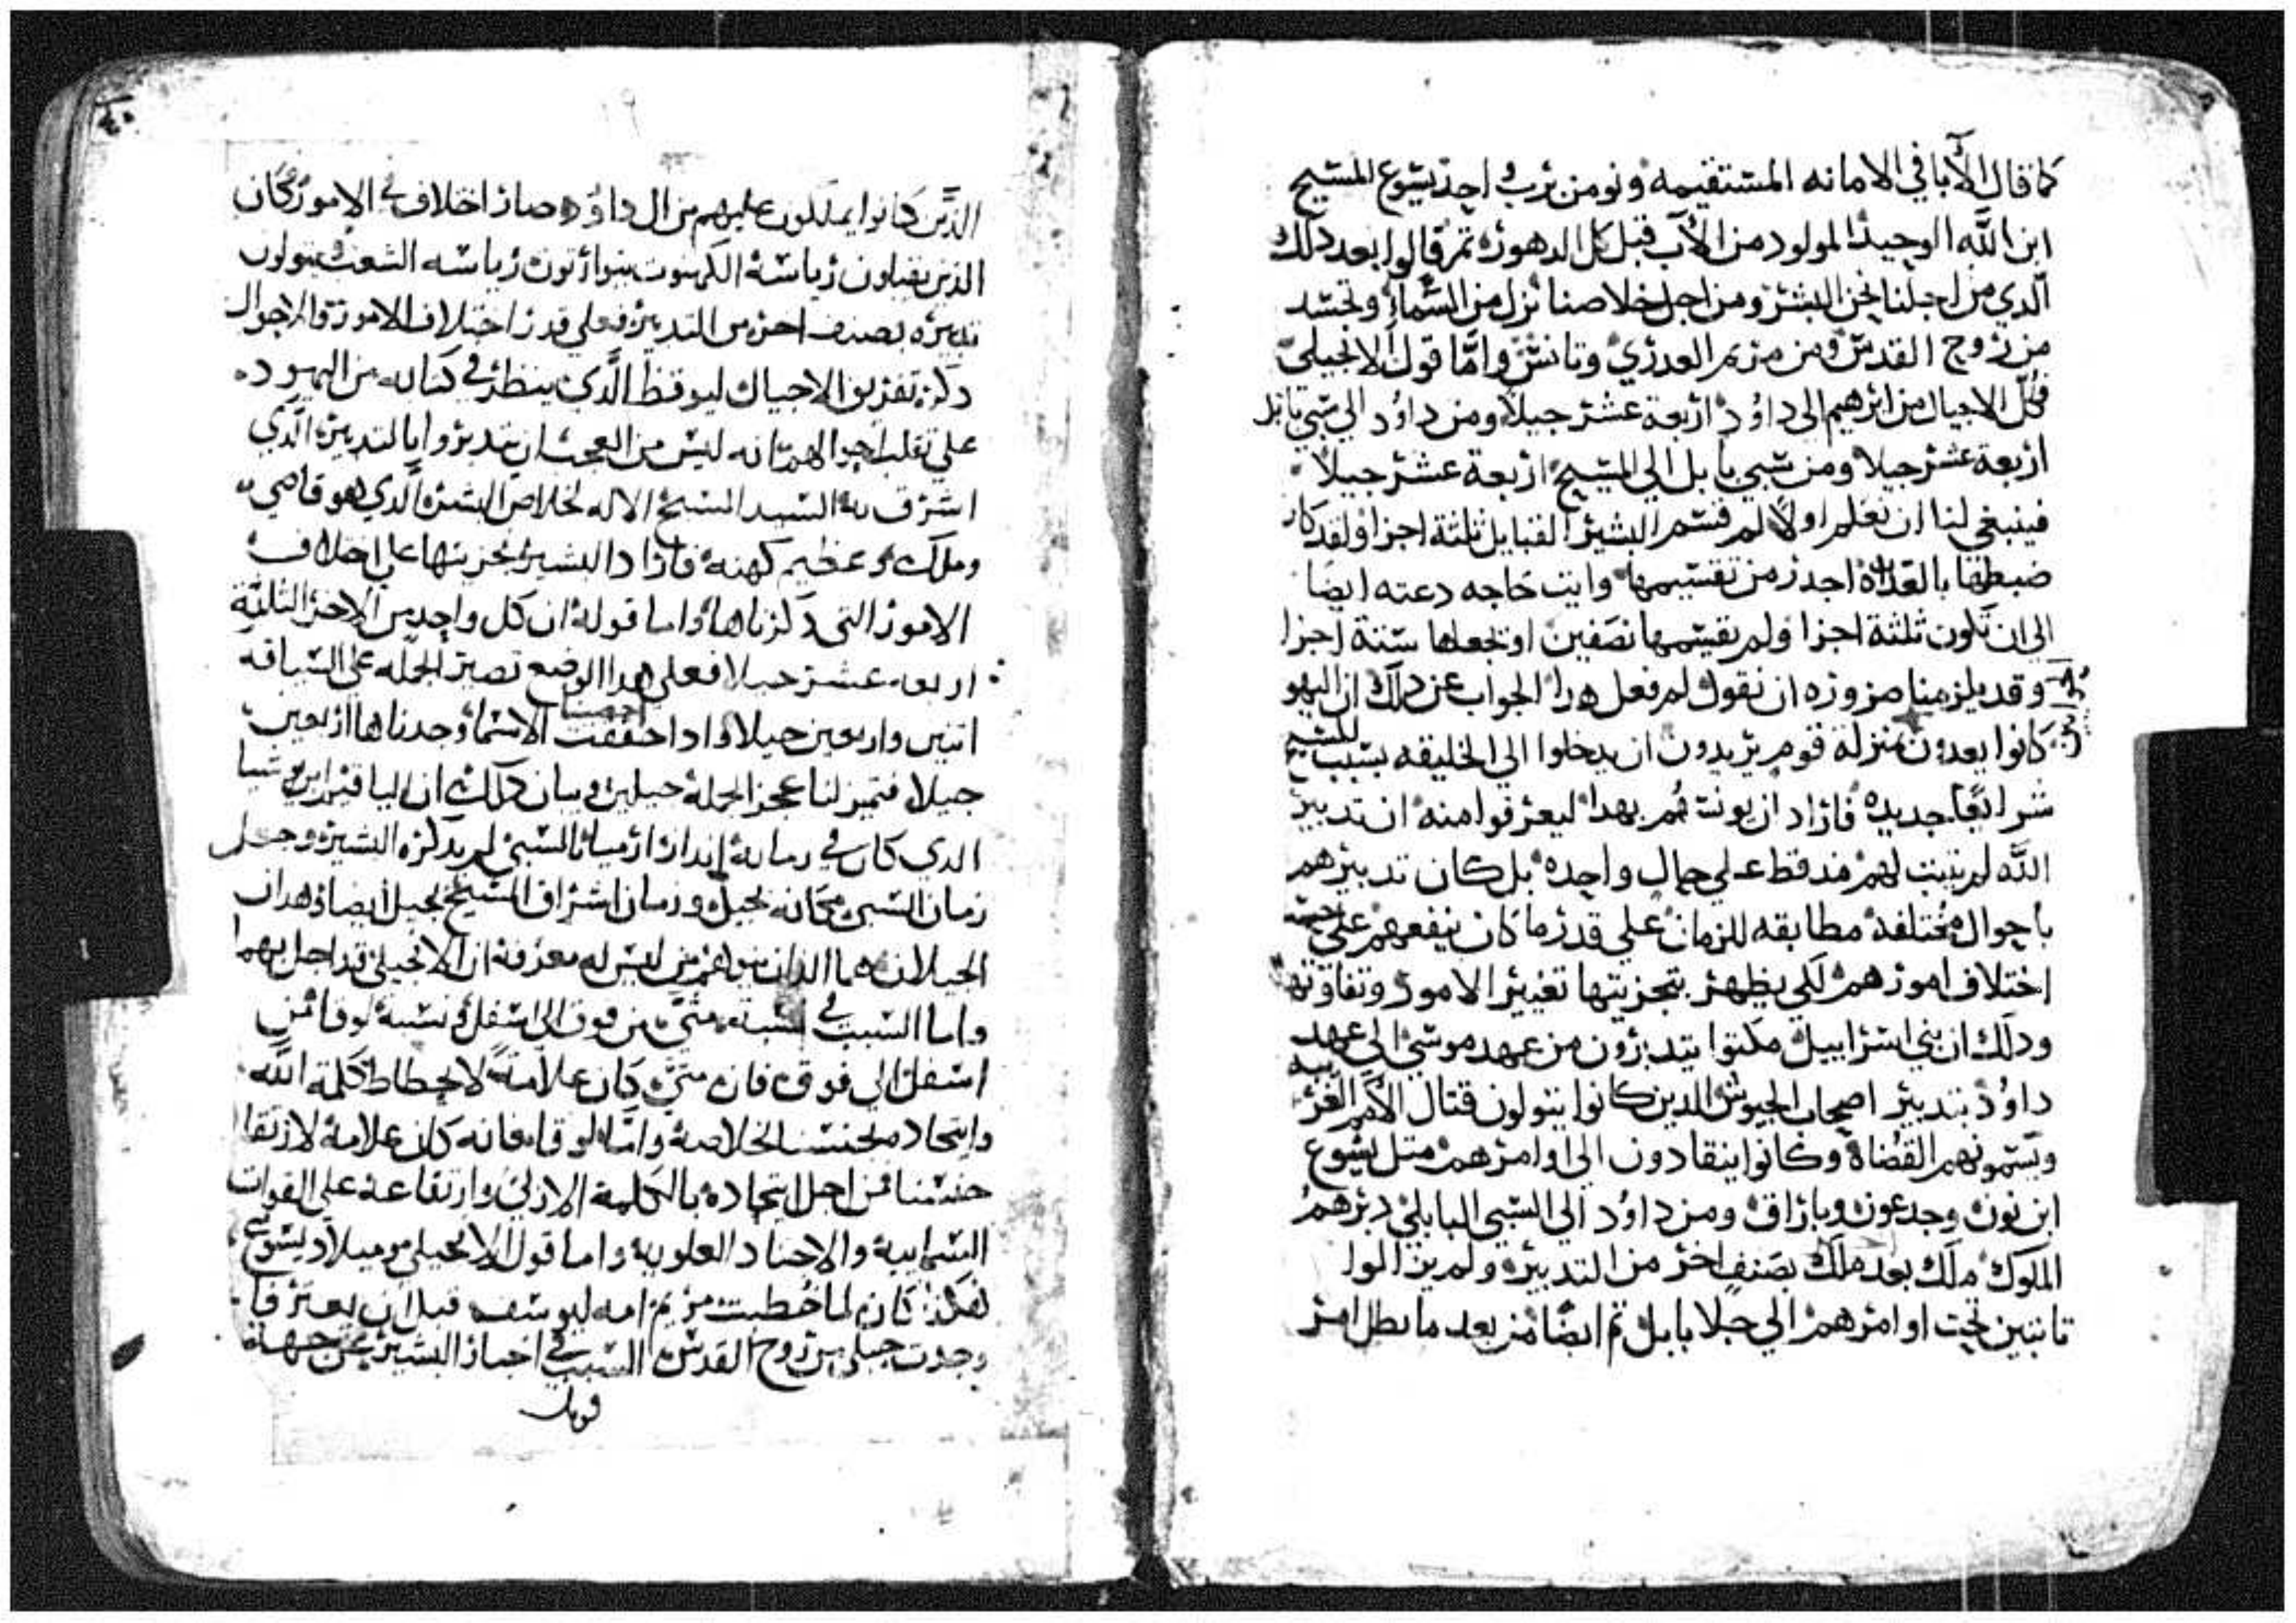 كما قال الآبا في الامانه المستقيمه ونومن برب واحد يشوع المسيح
ابن الله الوحيد المولود من الآب قبل كل الدهور ثم قالوا بعد دلك
الدي من اجلنا نحن البشر ومن اجل خلاصنا نزل من السماء وتجسد
من روح القدس ومن مريم العدري وتانس واما قول الانجيلي
فكل الاجيال من ابرهيم الى داوُد اربعة عشر جيلا ومن داوُد الي سبي بابل
اربعة عشر جيلا ومن سبي بابل الي المسيح اربعة عشر جيلا
فينبغي لنا ان نعلم اولا لم قسم البشير القبايل ثلثة اجزا ولقد كان
ضبطها بالعداد اجدر من تقسيمها وايت حاجه دعته ايضا
الى ان تكون ثلثة اجزا ولم يقسمها نصفين او يجعلها ستة اجزا
وقد يلزمنا ضروره ان نقول لم فعل هدا الجواب عن دلك ان اليهو
كانوا يعدون منزلة قوم يريدون ان يدخلوا الي الخليقه بسبب المسيح
شرايعا جديده فاراد ان يونب هم بهدا ليعرفوا منه ان تدبير
الله لم يتبت لهم قط علي حال واحده بل كان تدبيرهم
باحوال مختلفه مطابقه للزمان علي قدر ما كان ينفعهم علي
اختلاف امورهم لكي يظهر بتجزيتها تغيير الامور وتفاوتها
ودلك ان بني اسراييل مكتوا يتدبرون من عهد موسي الي عهد
داوُد بتدبير اصحاب الجيوش الدين كانوا يتولون قتال الامم الغريبه
ويسمونهم القضاة وكانوا ينقادون الي اوامرهم متل يشوع
ابن نون وجدعون وباراق ومن داوُد الي السبي البابلي دبرهم
الملوك ملك بعد ملك بصنف اخر من التدبير ولم يزالوا
تابتين تحت اوامرهم الي جلا بابل ثم ايضا من بعد ما بطل امر
الذين كانوا يملكون عليهم من ال داوُد وصار اختلاف في الامور كان
الذين يقبلون رياسة الكهنوت يتوارتون رياسه الشعب يتولون
تدبيره بصنف اخر من التدبير فعلي قدر اختلاف الامور والاحوال
دكر تفريق الاجيال ليوقظ الدي ينظر في كتابه من اليهود
علي تقلب احوالهم انه ليس من العجب ان يتدبروا بالتدبير الدي
اشرق به السيد المسيح الاله لخلاص البشر الدي هو قاضي
وملك وعظيم كهنه فاراد البشير بتجزيتها علي اختلاف
الامور التي دكرناها واما قوله ان كل واحد من الاجزا الثلثة
اربعه عشر جيلا فعلي هدا الوضع تصير الجمله على السياقه
اتنين واربعين جيلا وادا احققت الاسما وجدناها اربعين
جيلا فتميز لنا عجز الجملة جيلين وبيان دلك ان الياقيم ابن يوشيا
الدي كان في زمانه اندار ارميا بالسبي لم يدكره البشير وجعل
زمان السبي مكانه بجيل وزمان اشراق المسيح بجيل ايضا فهدان
الجيلان هما اللدان يتوهم من ليس له معرفة ان الانجيلي قد اخل بهما
واما السبب في نسبة متي من فوق الي اسفل ونسبة لوقا من
اسفل الي فوق فان متي كان علامة لانحطاط كلمة الله
واتحاده بجنسنا لخلاصه واما لوقا فانه كان علامة لارتقا
جنسنا من اجل اتحاده بالكلمة الازلي وارتفاعه على القوات
السمايية والاجناد العلوية واما قول الانجيلي وميلاد يشوع
لهكدا كان لما خطبت مريم امه ليوسف قبل ان يعترفا
وجدت حبلى من روح القدس السبب في اخبار البشير عن جهة
قوبل